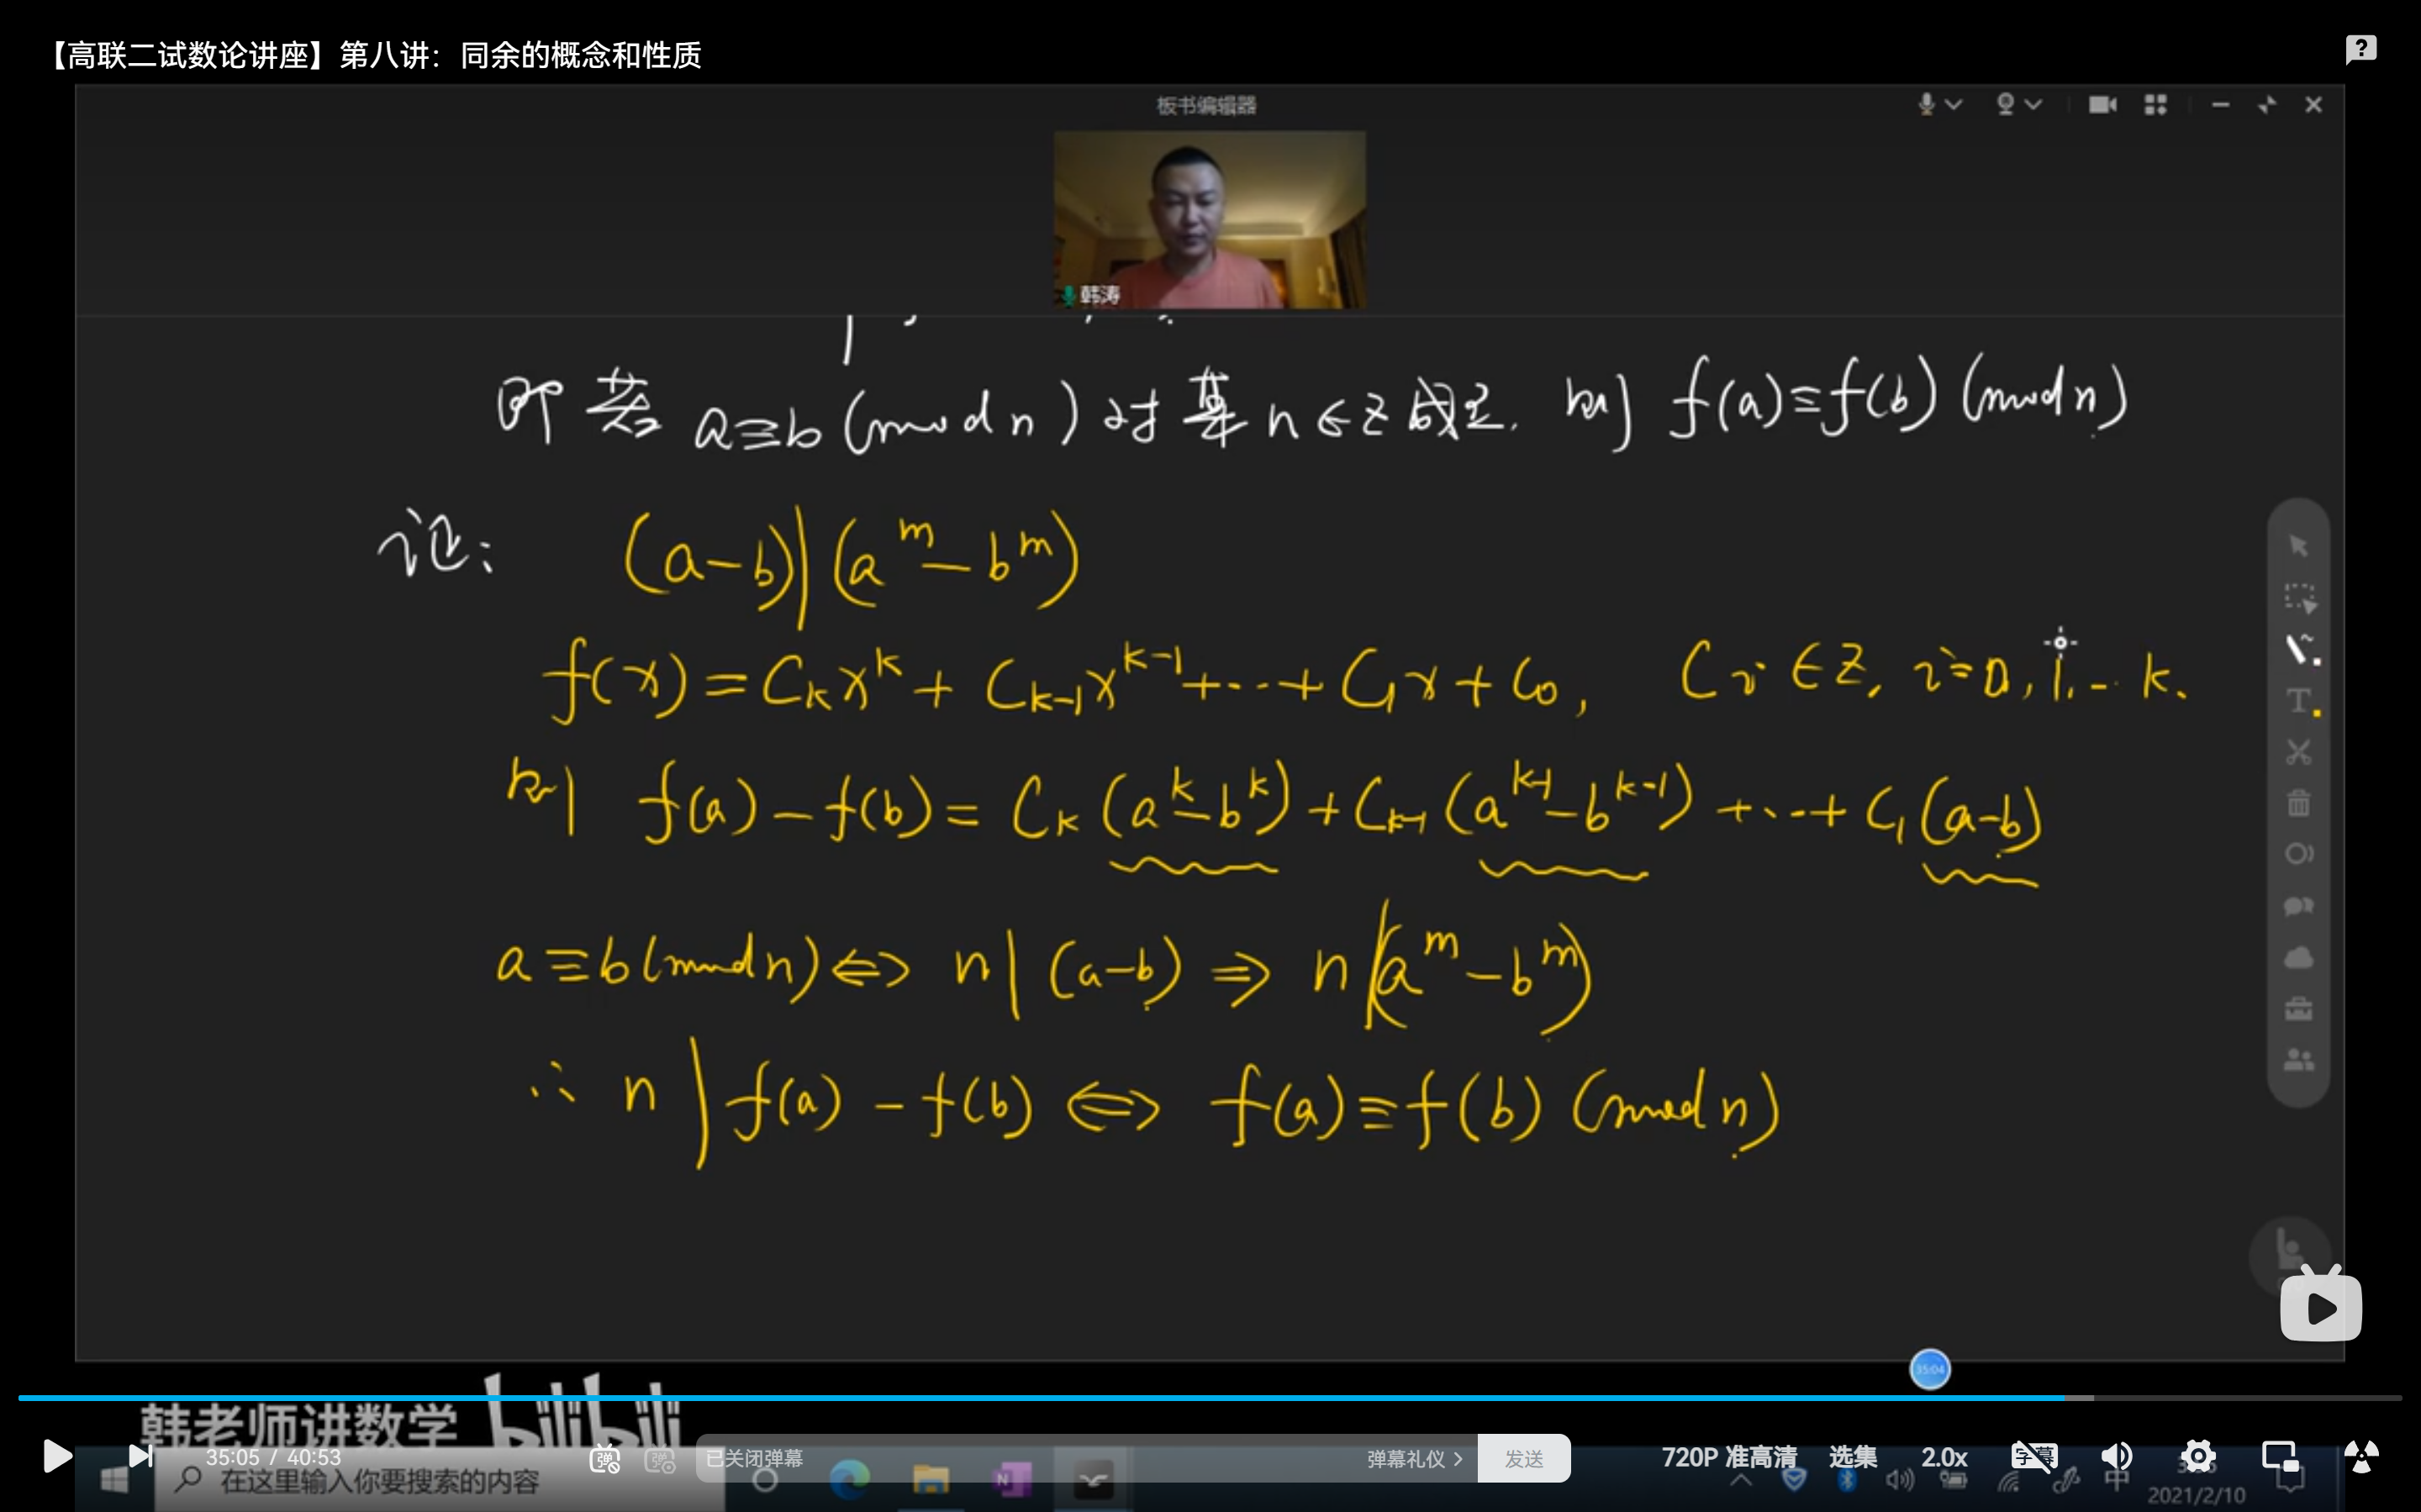 【高联二试数论讲座】第八讲：同余的概念和性质
板书编辑器
韩涛
即若 a≡b (mod n) 对某 n∈Z 成立. 则 f(a)≡f(b) (mod n)
证：
(a-b)|(a^m-b^m)
f(x)=C_k x^k+C_{k-1}x^{k-1}+...+C_1x+C_0, C_i∈Z, i=0,1,...k.
则 f(a)-f(b)=C_k(a^k-b^k)+C_{k-1}(a^{k-1}-b^{k-1})+...+C_1(a-b)
a≡b(mod n)⇔n|(a-b)⇒n|(a^m-b^m)
∴ n|f(a)-f(b)⇔f(a)≡f(b) (mod n)
35:04
韩老师讲数学 bilibili
35:05 / 40:53
弹
弹
已关闭弹幕
弹幕礼仪 >
发送
720P 准高清
选集
2.0x
字幕
在这里输入你要搜索的内容
中
2021/2/10